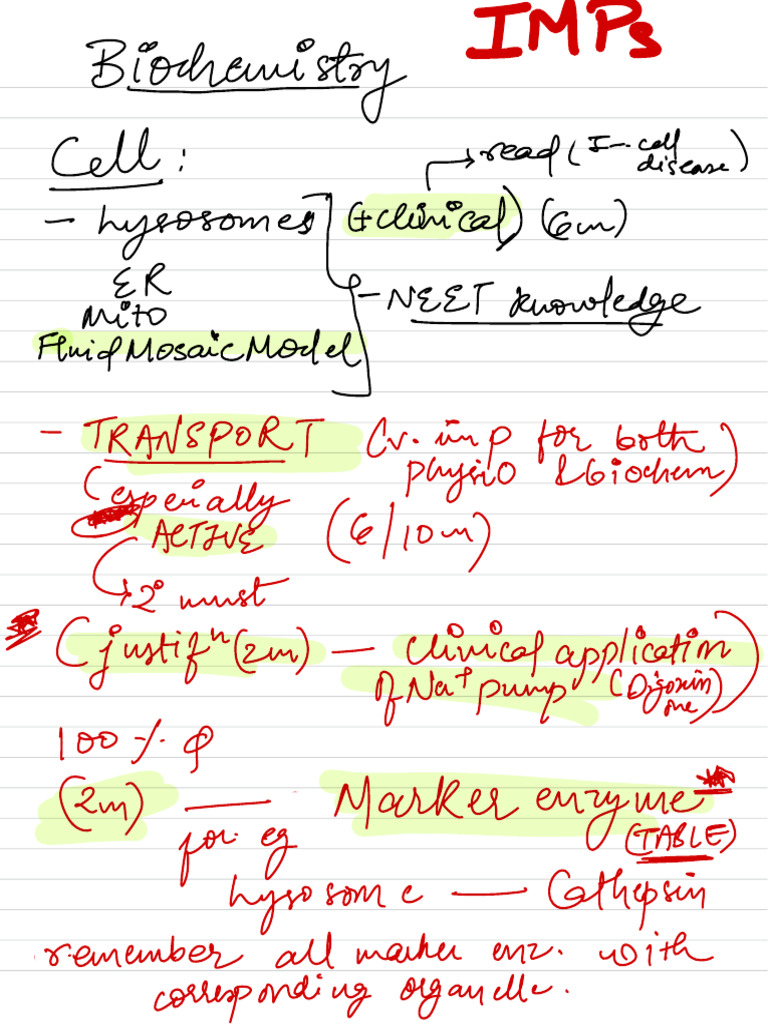 IMPs
Biochemistry
Cell :
→ read (I-cell disease)
- Lysosomes (+clinical) (6m)
ER
Mito
- NEET knowledge
Fluid Mosaic Model
- TRANSPORT (v. imp for both
physio & biochem)
(especially
ACTIVE (6/10m)
→ 2° must
(justifⁿ (2m) — clinical application
of Na⁺ pump (Digoxin
one)
100 % Q
(2m) — Marker enzyme
for eg (TABLE)
Lysosome — Cathepsin
remember all marker enz. with
corresponding organelle.